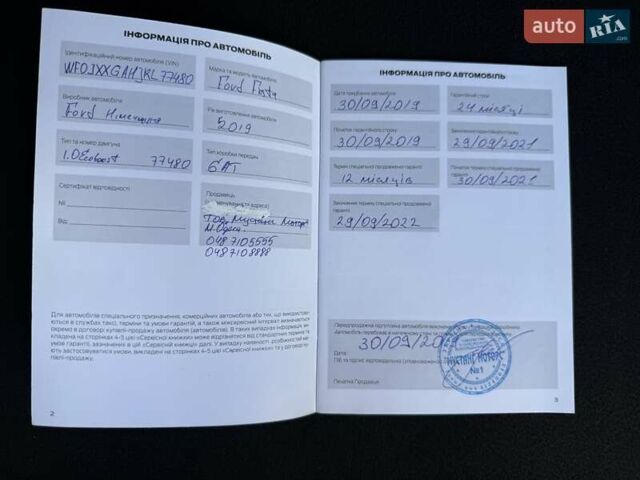 auto RIA.com
ІНФОРМАЦІЯ ПРО АВТОМОБІЛЬ
Ідентифікаційний номер автомобіля (VIN)
WF0JXXGAHJKL77480
Марка та модель автомобіля
Ford Fiesta
Виробник автомобіля
Ford Німеччина
Рік виготовлення автомобіля
2019
Тип та номер двигуна
1.0Ecoboost 77480
Тип коробки передач
6AT
Сертифікат відповідності
№
Від
Продавець
(найменування та адреса)
ТОВ Мустанг Моторс
м.Одеса
048 7105555
048 7108888
Для автомобілів спеціального призначення, комерційних автомобілів або тих, що використову-
ються в службах таксі, терміни та умови гарантій, а також міжсервісний інтервал визначаються
окремо в договорі купівлі-продажу автомобіля (автомобілів). В таких випадках інформація, ви-
кладена на сторінках 4-5 цієї «Сервісної книжки» може відрізнятися від стандартних термінів та
умов гарантії, зазначених в цій «Сервісній книжці» далі. У випадку наявності розбіжностей ма-
ють застосовуватися умови, викладені на сторінках 4-5 цієї «Сервісної книжки» та у договорі купів-
лі-продажу.
2
ІНФОРМАЦІЯ ПРО АВТОМОБІЛЬ
Дата придбання автомобіля
30/09/2019
Гарантійний строк
24 місяці
Початок гарантійного строку
30/09/2019
Закінчення гарантійного строку
29/09/2021
Термін спеціальної продовженої гарантії
12 місяців
Початок терміну спеціальної продовженої
гарантії
30/09/2021
Закінчення терміну спеціальної продовженої
гарантії
29/09/2022
Передпродажна підготовка автомобіля виконана
Автомобіль перебуває в належному стані та
30/09/2019
Дата
ПІБ та підпис відповідальної (уповноваженої)
Печатка Продавця
МУСТАНГ МОТОРС
№1
3